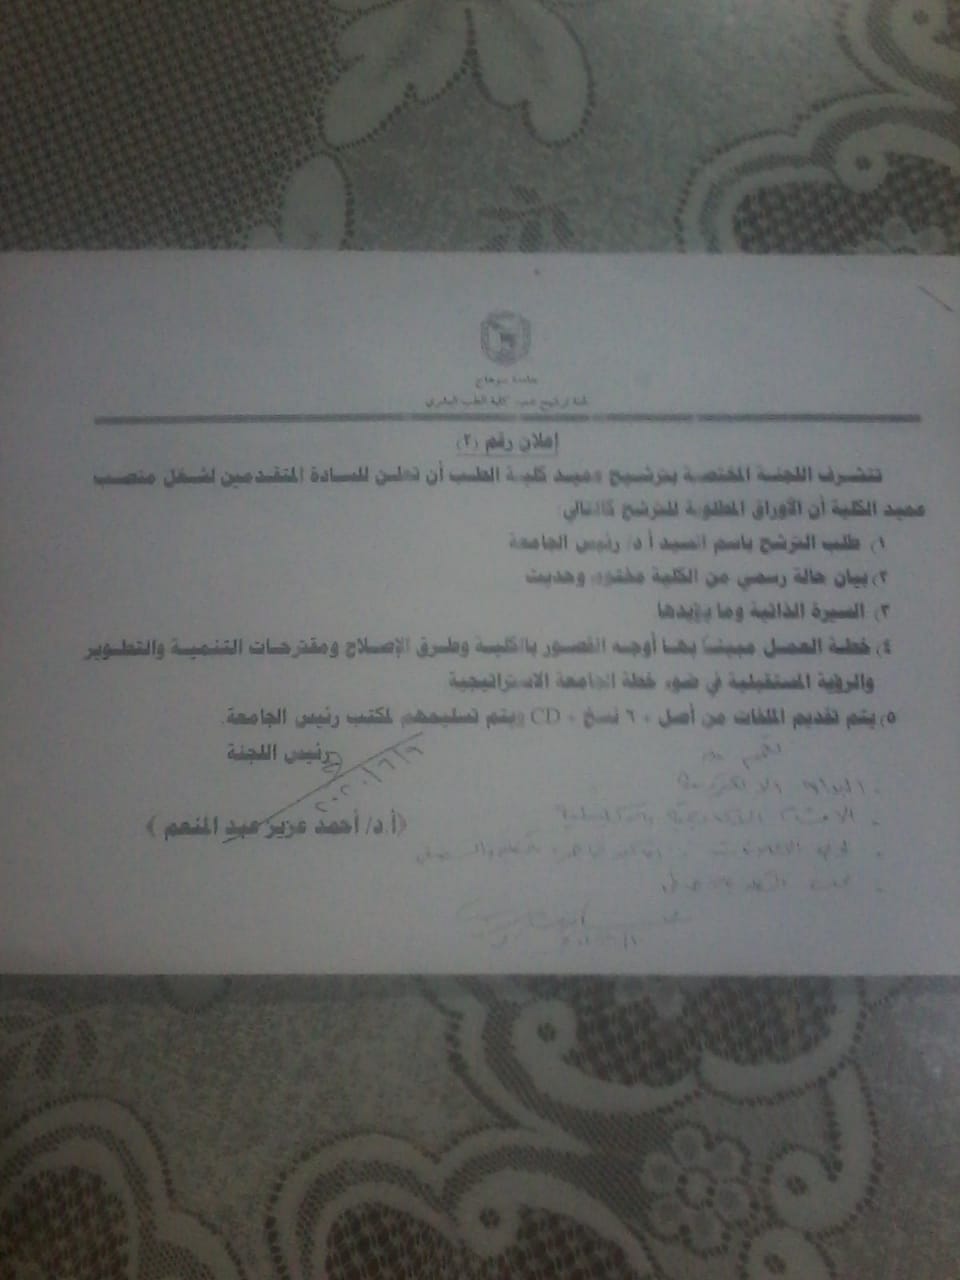 جامعة سوهاج
لجنة ترشيح عميد كلية الطب البشرى
إعلان رقم (٢)
تتشرف اللجنة المختصة بترشيح عميد كلية الطب أن تعلن للسادة المتقدمين لشغل منصب
عميد الكلية أن الأوراق المطلوبة للترشح كالتالي:
١) طلب الترشح باسم السيد أ.د/ رئيس الجامعة
٢) بيان حالة رسمي من الكلية مختوم وحديث
٣) السيرة الذاتية وما يؤيدها
٤) خطة العمل مبيناً بها أوجه القصور بالكلية وطرق الإصلاح ومقترحات التنمية والتطوير
والرؤية المستقبلية في ضوء خطة الجامعة الاستراتيجية
٥) يتم تقديم الملفات من أصل + ٦ نسخ + CD ويتم تسليمهم لمكتب رئيس الجامعة.
رئيس اللجنة
٢٠٢٠/٦/٦
(أ.د/ أحمد عزيز عبد المنعم)